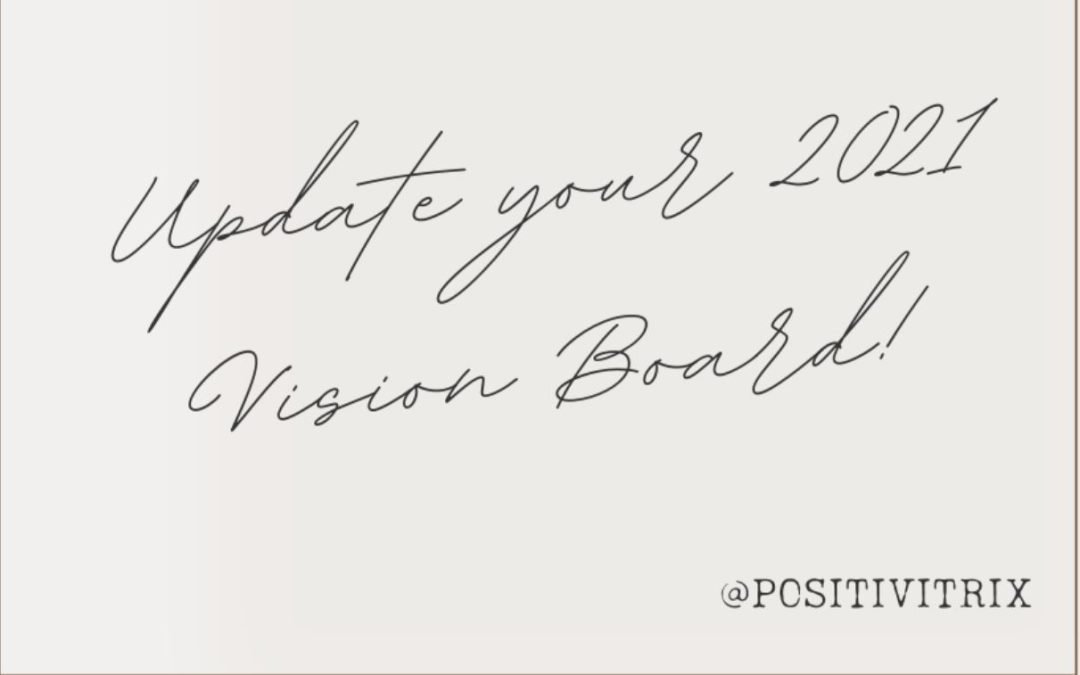 Update your 2021
Vision Board!
@POSITIVITRIX